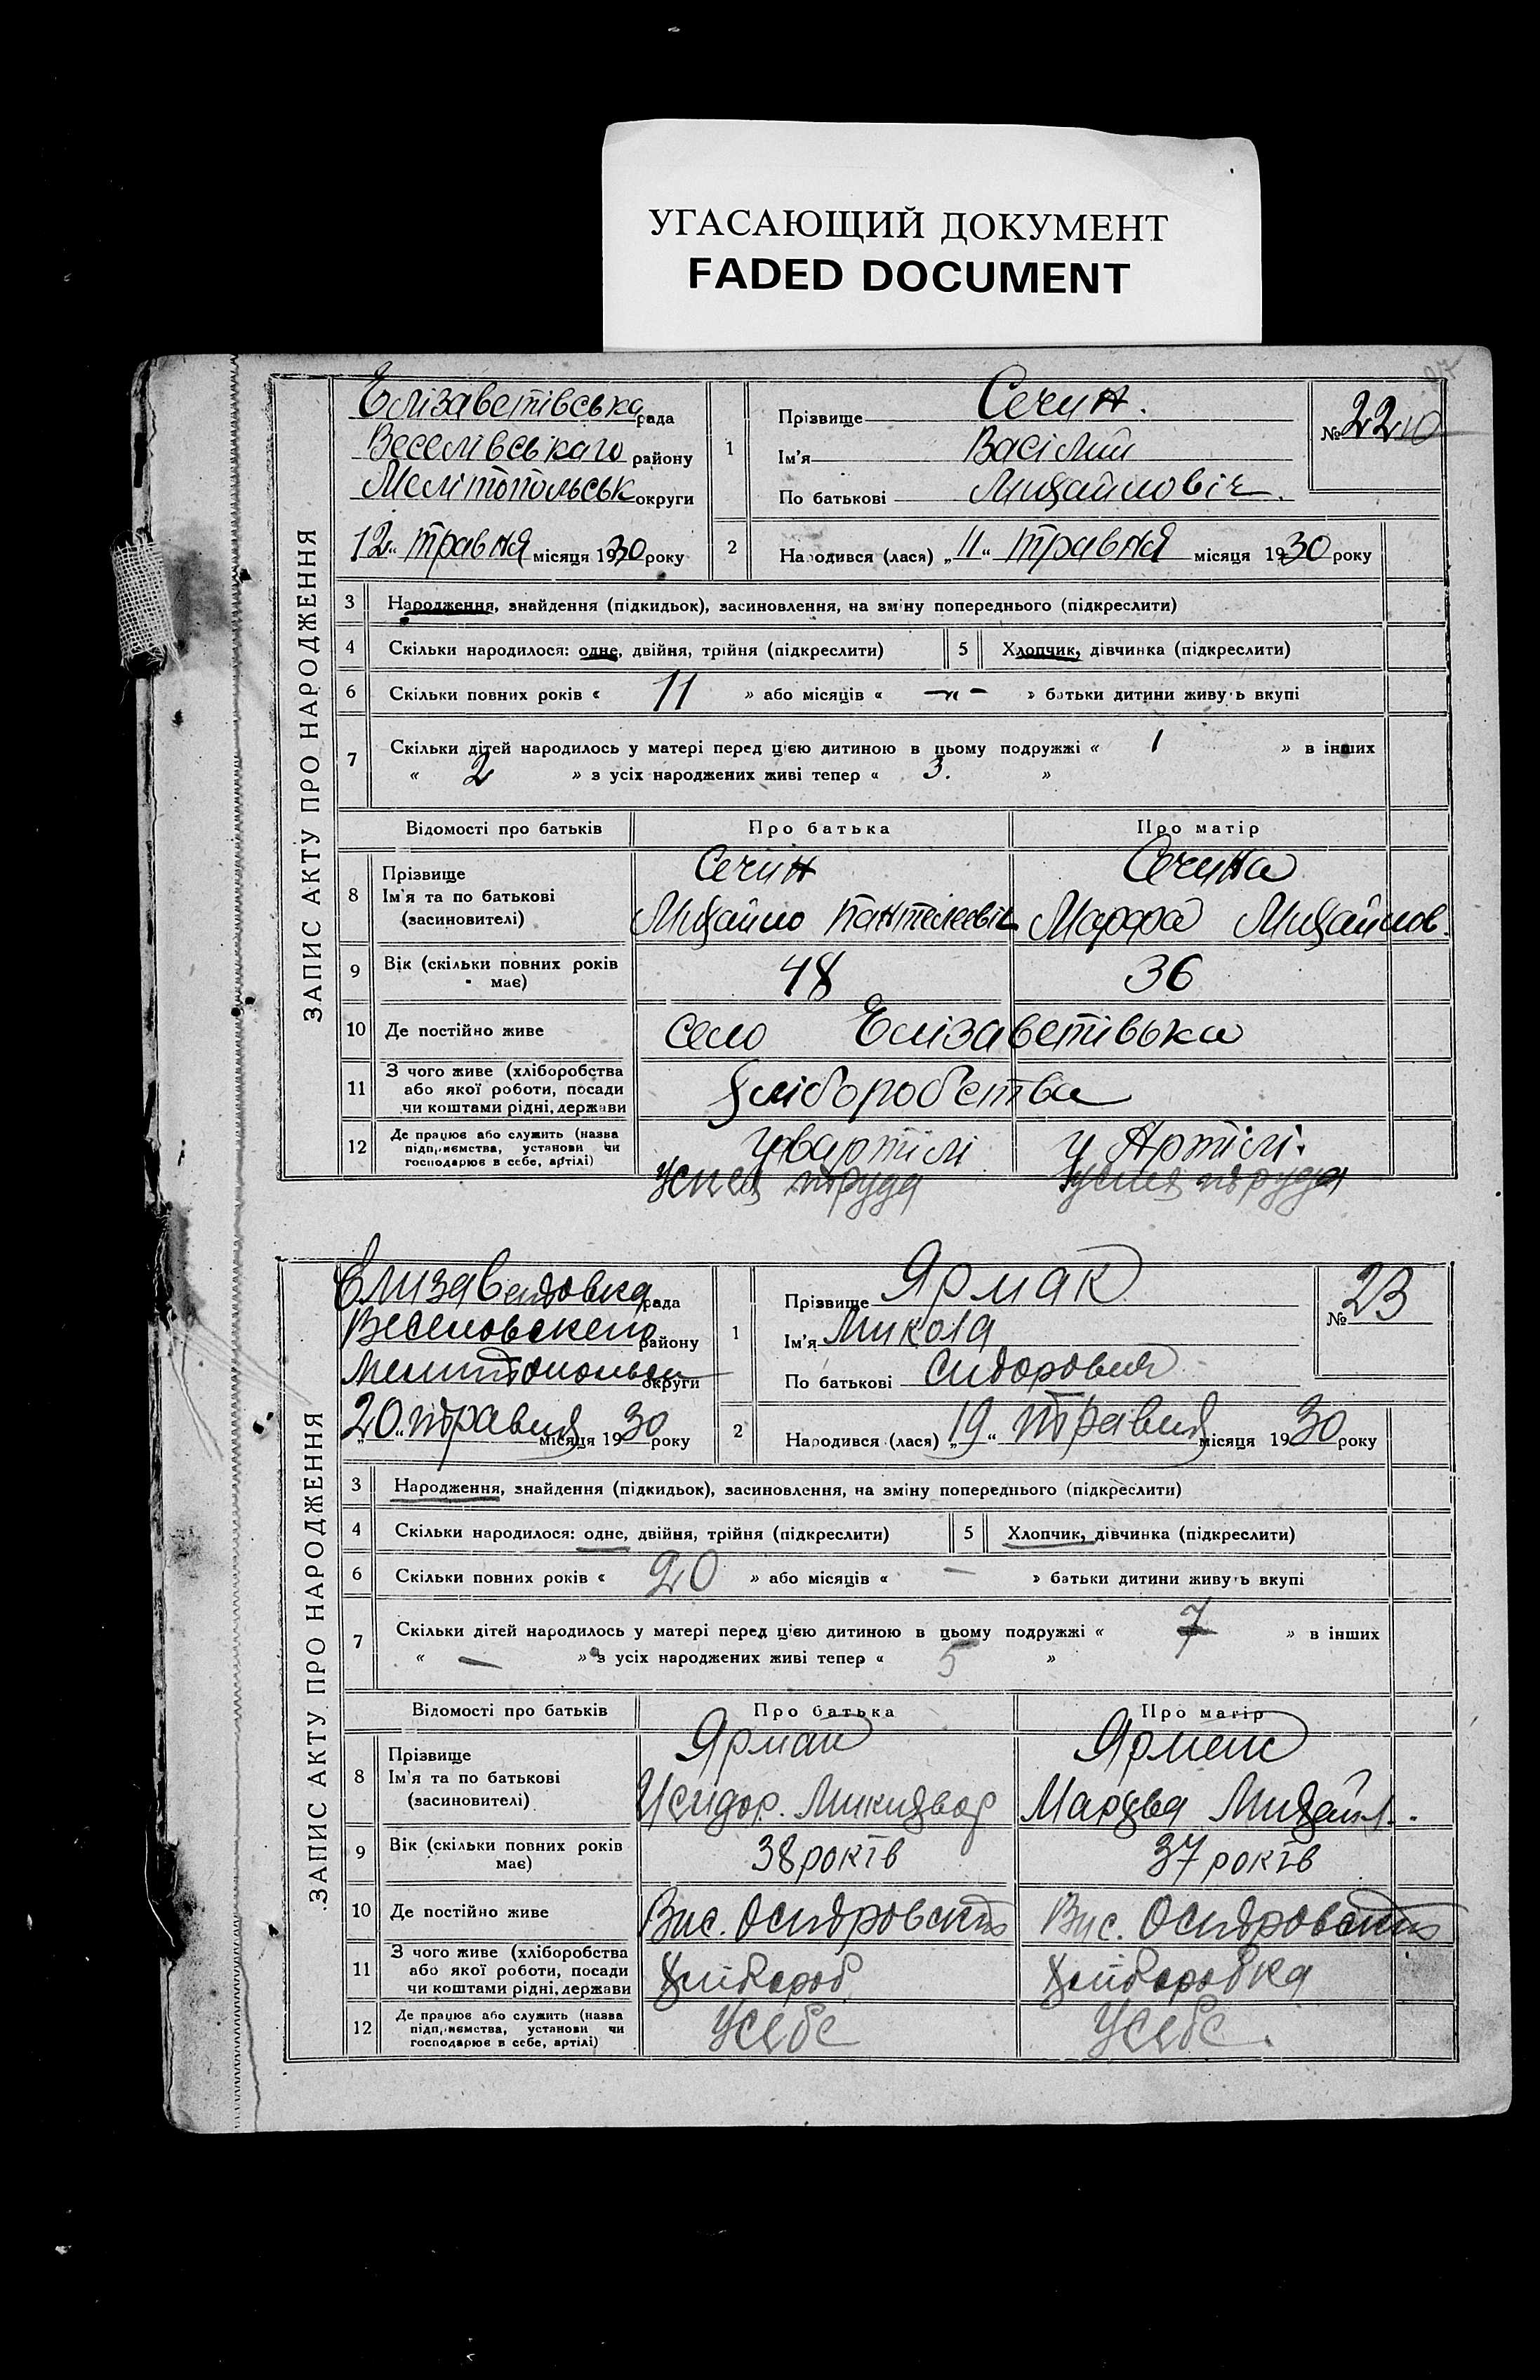 УГАСАЮЩИЙ ДОКУМЕНТ
FADED DOCUMENT
ЗАПИС АКТУ ПРО НАРОДЖЕННЯ
Елізаветівська рада
Веселівськаго району
Мелітопольськ округи
„12“ травня місяця 1930 року
1
Прізвище Сечин.
Ім'я Васілий
По батькові Михайловіч.
№ 22
2
Народився (лася) „11“ травня місяця 1930 року
3 Народження, знайдення (підкидьок), засиновлення, на зміну попереднього (підкреслити)
4 Скільки народилося: одне, двійня, трійня (підкреслити) 5 Хлопчик, дівчинка (підкреслити)
6 Скільки повних років « 11 » або місяців « -"- » батьки дитини живуть вкупі
7 Скільки дітей народилось у матері перед цією дитиною в цьому подружжі « 1 » в інших
« 2 » з усіх народжених живі тепер « 3. »
Відомості про батьків Про батька Про матір
8 Прізвище Сечин Сечина
Ім'я та по батькові
(засновителі) Михайло Пантелеевіч Марфа Михайлов.
9 Вік (скільки повних років має) 48 36
10 Де постійно живе село Елізаветівька
11 З чого живе (хліборобства
або якої роботи, посади
чи коштами рідні, держави хліборобства
12 Де працює або служить (назва
підприємства, установи чи
господарює в себе, артілі) у Артілі.
труда труда
ЗАПИС АКТУ ПРО НАРОДЖЕННЯ
Елизаветовка рада
Веселовского району
округи
„20“ травня місяця 1930 року
1
Прізвище Ярмак
Ім'я Микола
По батькові Сидоровия
№ 23
2
Народився (лася) „19“ травня місяця 1930 року
3 Народження, знайдення (підкидьок), засиновлення, на зміну попереднього (підкреслити)
4 Скільки народилося: одне, двійня, трійня (підкреслити) 5 Хлопчик, дівчинка (підкреслити)
6 Скільки повних років « 20 » або місяців « — » батьки дитини живуть вкупі
7 Скільки дітей народилось у матері перед цією дитиною в цьому подружжі « 7 » в інших
« — » з усіх народжених живі тепер « 5 »
Відомості про батьків Про батька Про матір
8 Прізвище Ярмак Ярмак
Ім'я та по батькові
(засиновителі) Исидор. Михайл.
9 Вік (скільки повних років має) 38 років 37 років
10 Де постійно живе Вис. Вис.
11 З чого живе (хліборобства
або якої роботи, посади
чи коштами рідні, держави хлібороб хлібкоробка
12 Де працює або служить (назва
підприємства, установи чи
господарює в себе, артілі) У себе У себе.